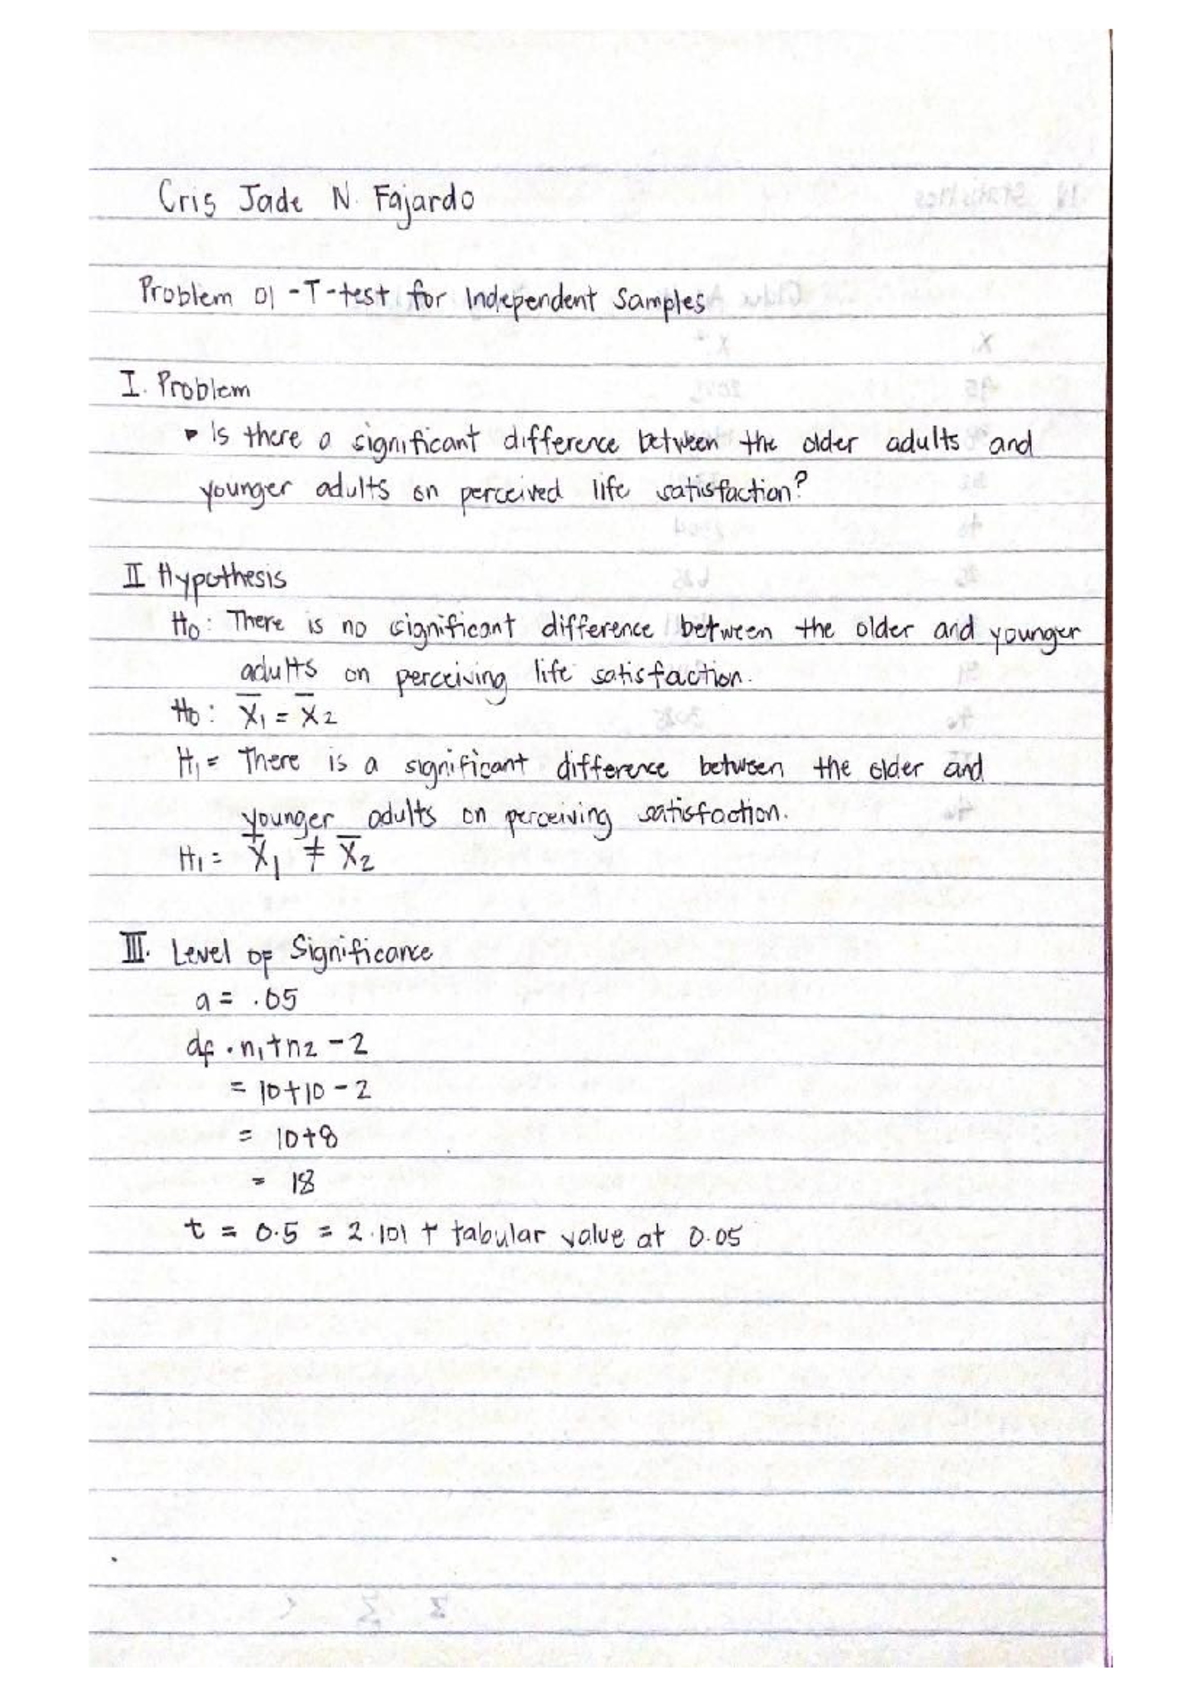 Cris Jade N. Fajardo
Problem 01 - T-test for Independent Samples
I. Problem
Is there a significant difference between the older adults and
younger adults on perceived life satisfaction?
II Hypothesis
Ho: There is no significant difference between the older and younger
adults on perceiving life satisfaction.
Ho: X̄1 = X̄2
H1 = There is a significant difference between the older and
younger adults on perceiving satisfaction.
H1 = X̄1 ≠ X̄2
III. Level of Significance
a = .05
df · n1+n2 - 2
= 10+10 - 2
= 10+8
= 18
t = 0.5 = 2.101 t tabular value at 0.05